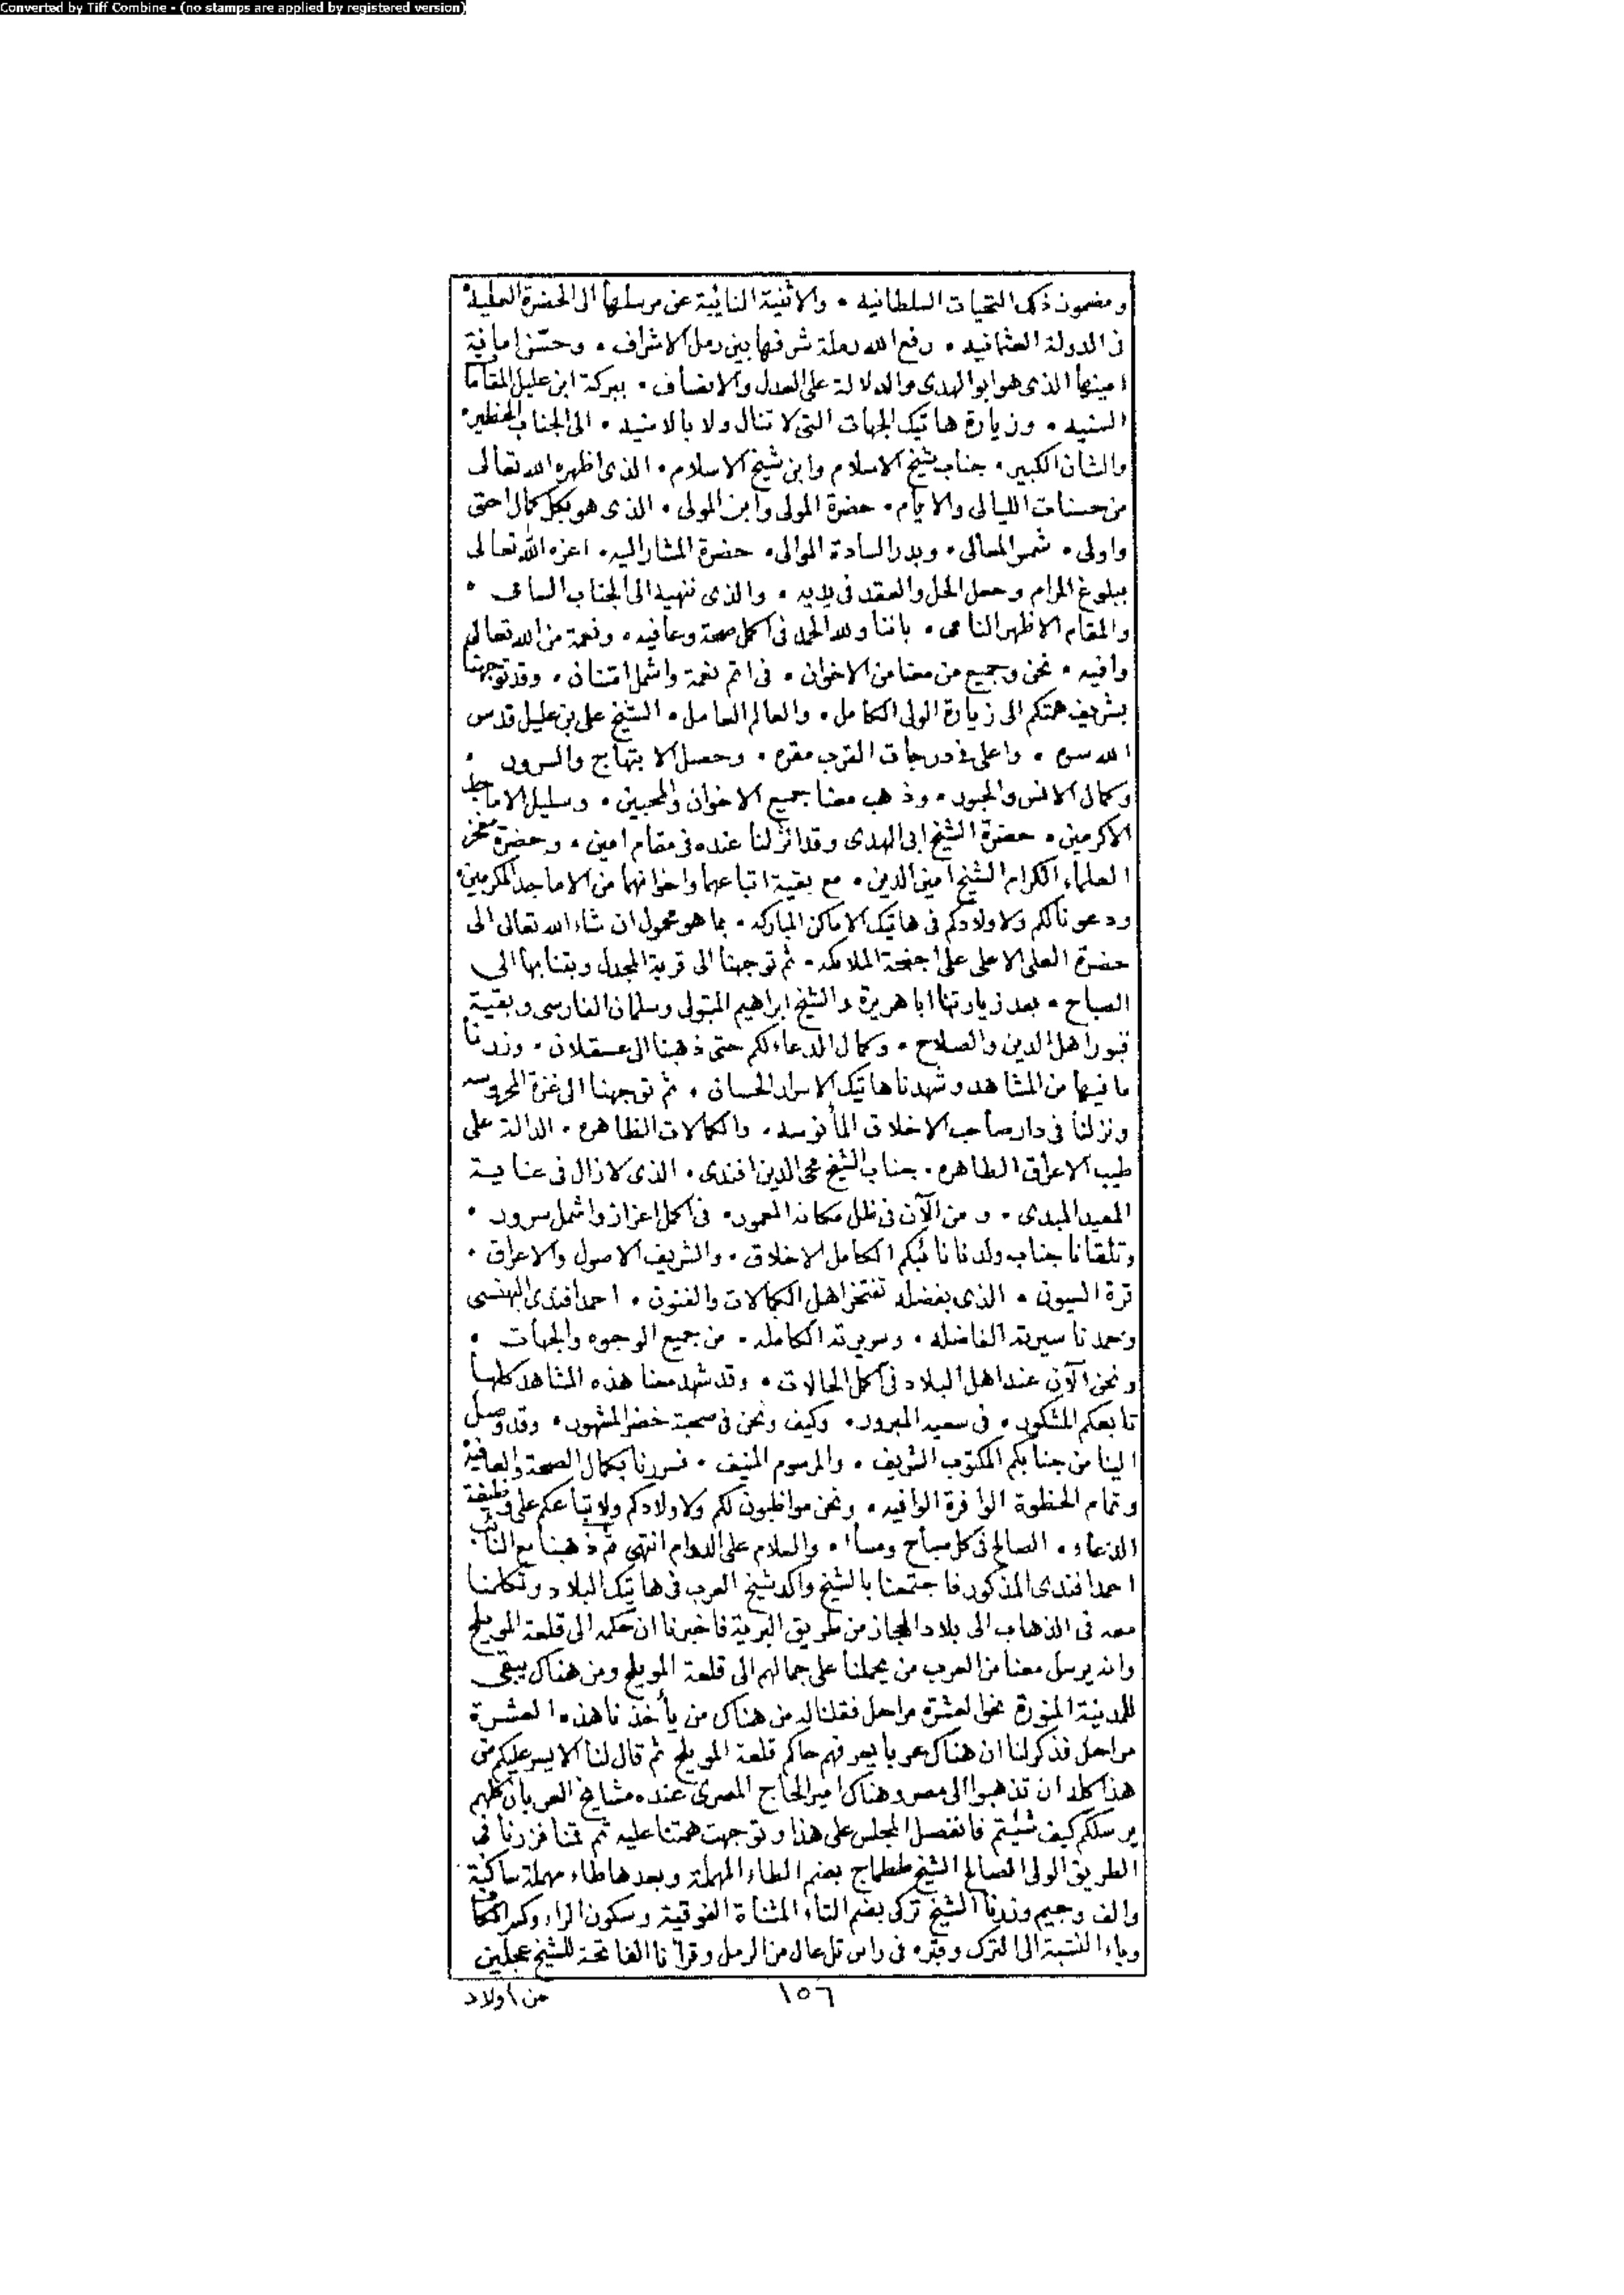 Converted by Tiff Combine - (no stamps are applied by registered version)
ومضمون ذلك التحيات السلطانيه • والاثنية النائبة عن مرسلها الى الحضرة العليه •
فى الدولة العثمانيه • رفع الله رملة شرفها بين رمل الاشراف •
امينها الذى هو ابو الهدى والدلالة على العدل والانصاف • ببركة ابن عليل المقاما
السنيه • وزيارة هاتيك الجهات التى لا تنال ولا بالامنيه • الى الجناب الخطير •
والشان الكبير • جناب شيخ الاسلام وابن شيخ الاسلام • الذى اظهره الله تعالى
من حسنات الليالى والايام • حضرة المولى وابن المولى • الذى هو بكل كمال احق
واولى • شمس المعالى • وبدر السادة الموالى • حضرة المشار اليه • اعزه الله تعالى
ببلوغ المرام وجعل الحل والعقد فى يديه • والذى ننهيه الى الجناب السامى •
والمقام الاظهر النامى • باننا ولله الحمد فى اكمل صحة وعافيه • ونعمة من الله تعالى
وافيه • نحن وجميع من معنا من الاخوان • فى اتم نعمة واشمل امتنان • وقد توجهنا
بشريف همتكم الى زيارة الولى الكامل • والعالم العامل • الشيخ على بن عليل قدس
الله سره • واعلى فى درجات القرب مقره • وحصل الابتهاج والسرور •
وكمال الانس والحبور • وذهب معنا جميع الاخوان والمحبين • وسليل الاماجد
الاكرمين • حضرة الشيخ ابى الهدى وقد انزلنا عنده فى مقام امين • وحضرة مفخر
العلماء الكرام الشيخ امين الدين • مع بقية اتباعهما واخوانهما من الاماجد المكرمين •
ودعونا لكم ولاولادكم فى هاتيك الاماكن المباركه • بما هو محمول ان شاء الله تعالى الى
حضرة العلى الاعلى على اجنحة الملائكه • ثم توجهنا الى قرية المجدل وبتنا بها الى
الصباح • بعد زيارتنا ابا هريرة والشيخ ابراهيم المتبولى وسلمان الفارسى وبقية
قبور اهل الدين والصلاح • وكمال الدعاء لكم حتى ذهبنا الى عسقلان • وزرنا
ما فيها من المشاهد وشهدنا هاتيك الاسرار الحسان • ثم توجهنا الى غزة المحروسه
ونزلنا فى دار صاحب الاخلاق المأنوسه • والكمالات الظاهره • الدالة على
طيب الاعراق الطاهره • جناب الشيخ محى الدين افندى • الذى لازال فى عناية
المعيد المبدى • ومن الآن فى ظل مكانه المعمور • فى اكمل اعزاز واشمل سرور •
وتلقانا جناب ولدنا نائبكم الكامل الاخلاق • والشريف الاصول والاعراق •
قرة العيون • الذى بفضله تفتخر اهل الكمالات والفنون • احمد افندى البهنسى
وحمدنا سيرته الفاضله • وسريرته الكامله • من جميع الوجوه والجهات •
ونحن الآن عند اهل البلاد فى اكمل الحالات • وقد شهد معنا هذه المشاهد كلها
تابعكم المشكور • فى سعيه المبرور • وكيف ونحن فى صحبة خضر المشهور • وقد وصل
الينا من جنابكم المكتوب الشريف • والمرسوم المنيف • فسررنا بكمال الصحة والعافية
وتمام الحظوة الوافرة الوافيه • ونحن مواظبون لكم ولاولادكم ولاتباعكم على وظيفة
الدعاء • الصالح فى كل صباح ومساء • والسلام على الدوام انتهى ثم ذهبنا مع النائب
احمد افندى المذكور فاجتمعنا بالشيخ واكد شيخ العرب فى هاتيك البلاد وتكلمنا
معه فى الذهاب الى بلاد الحجاز من طريق البرية فاخبرنا ان حكمه الى قلعة المويلح
وانه يرسل معنا من العرب من يحملنا على جمالهم الى قلعة المويلح ومن هناك يبقى
للمدينة المنورة نحو العشرة مراحل فقلنا له من هناك من يأخذنا هذه العشرة
مراحل فذكر لنا ان هناك عربا يعرفهم حاكم قلعة المويلح ثم قال لنا الايسر عليكم من
هذا كله ان تذهبوا الى مصر وهناك امير الحاج المصرى عنده مشايخ العربان كلهم
يرسلكم كيف شئتم فانفصل المجلس على هذا وتوجهت همتنا عليه ثم قمنا فزرنا فى
الطريق الولى الصالح الشيخ طمطاج بضم الطاء المهملة وبعدها طاء مهملة ساكنة
والف وجيم وزرنا الشيخ تركى بضم التاء المثناة الفوقية وسكون الراء وكسر الكاف
وياء النسبة الى الترك وقبره فى راس تل عال من الرمل وقرأنا الفاتحة للشيخ عجلين
١٥٦
من اولاد